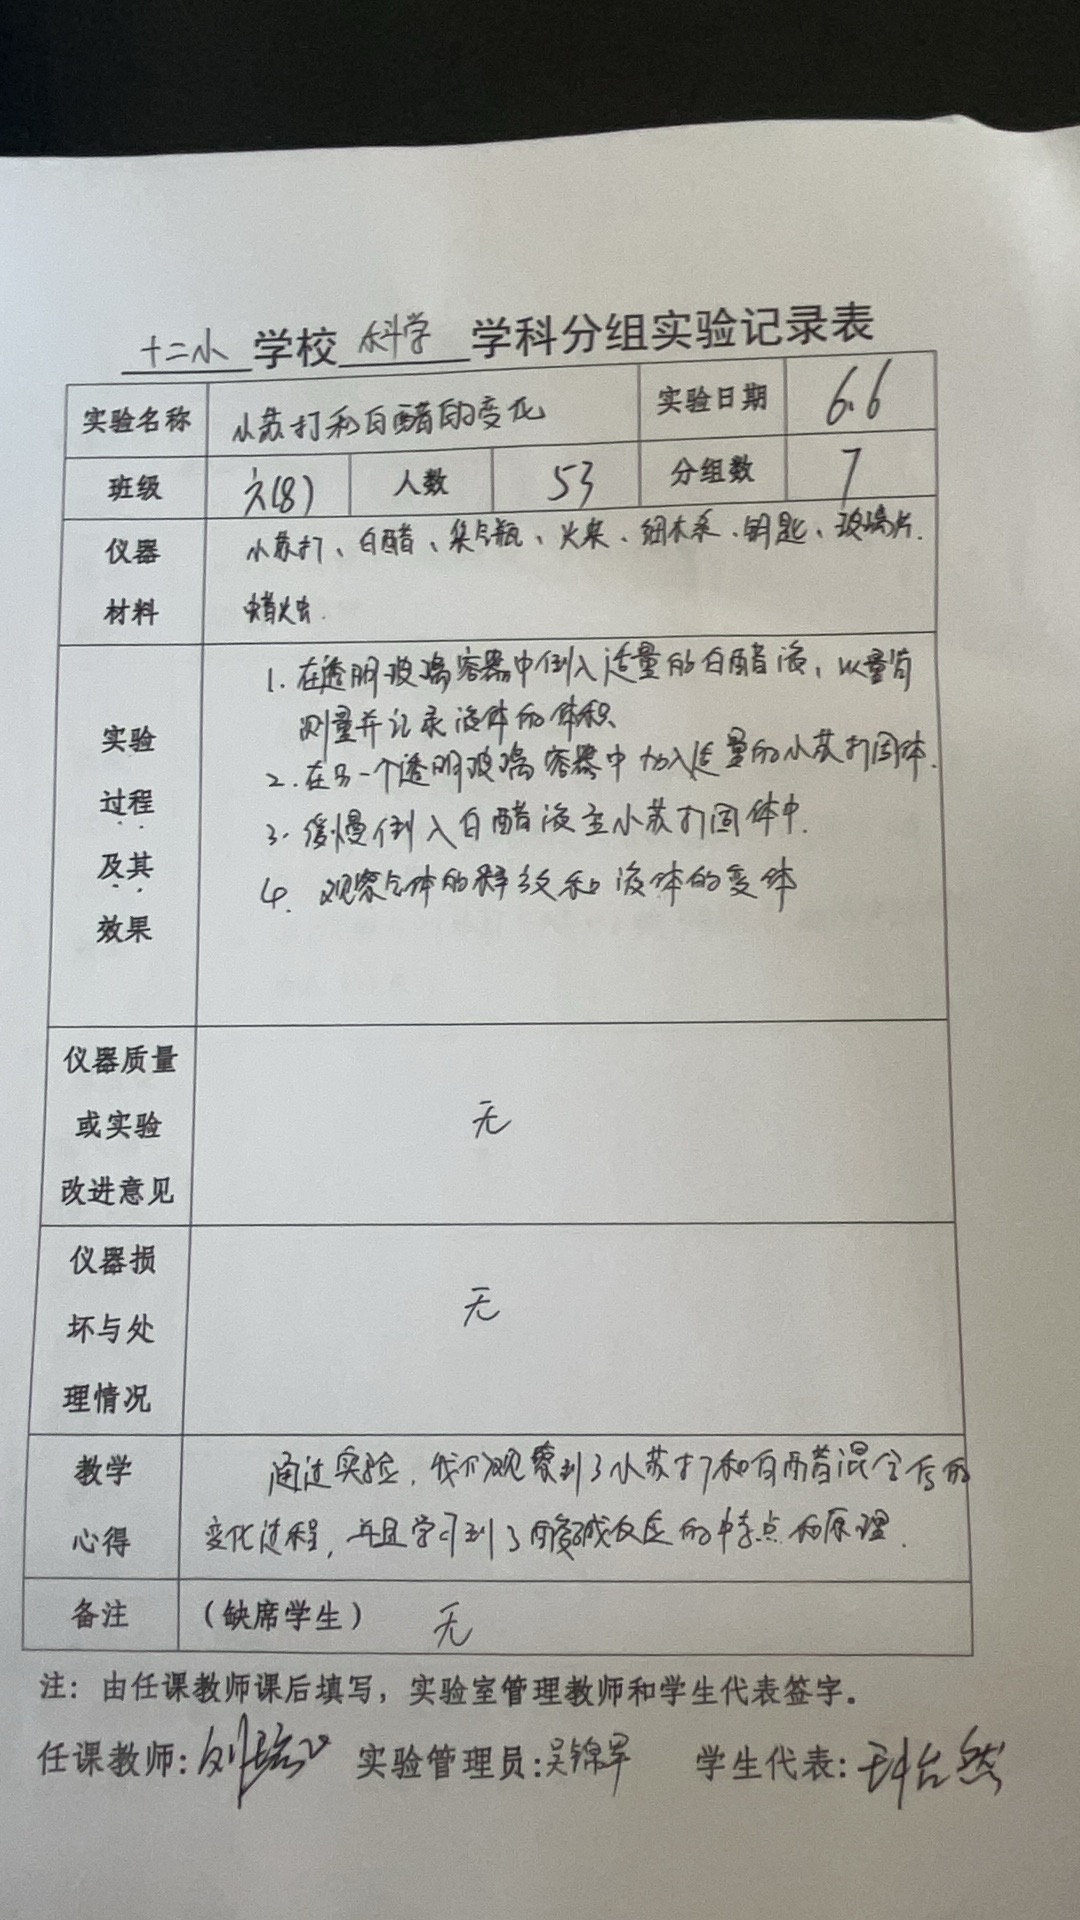 十二小 学校 科学 学科分组实验记录表
实验名称 小苏打和白醋的变化 实验日期 6.6
班级 六(8) 人数 53 分组数 7
仪器 材料
小苏打、白醋、集气瓶、火柴、细木条、钥匙、玻璃片.
蜡烛.
实验 过程 及其 效果
1. 在透明玻璃容器中倒入适量的白醋液, 以量筒
测量并记录液体的体积、
2. 在另一个透明玻璃容器中加入适量的小苏打固体.
3. 缓慢倒入白醋液至小苏打固体中.
4. 观察气体的释放和液体的变体
仪器质量 或实验 改进意见
无
仪器损 坏与处 理情况
无
教学 心得
通过实验, 我们观察到了小苏打和白醋混合后的
变化过程, 并且学习到了酸碱反应的特点和原理.
备注 (缺席学生) 无
注：由任课教师课后填写，实验室管理教师和学生代表签字。
任课教师: 实验管理员: 学生代表: